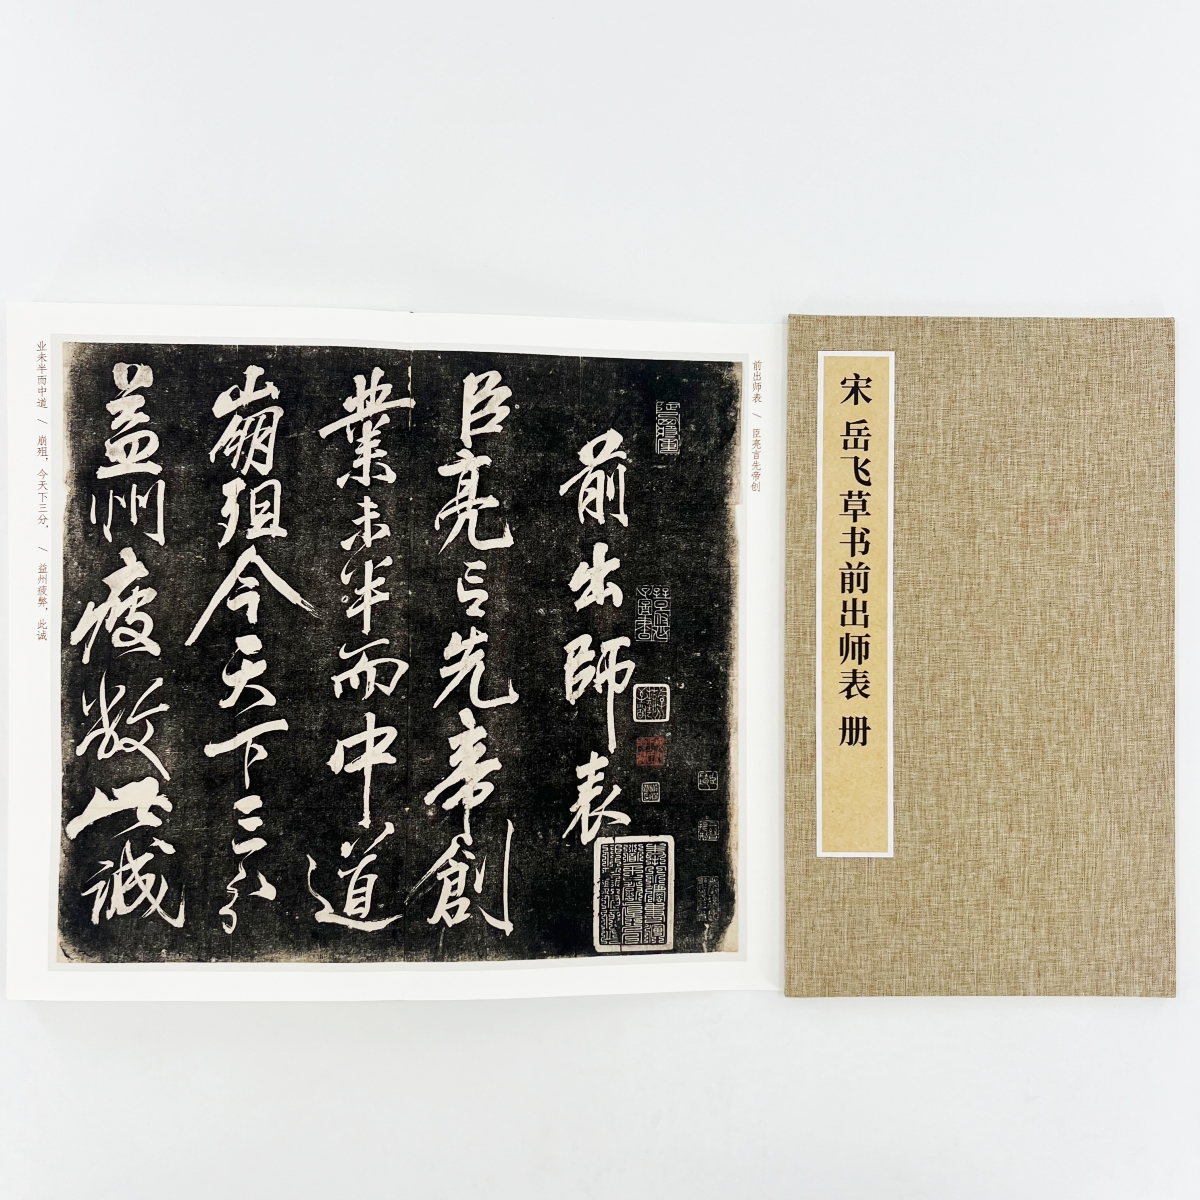 宋 岳飞草书前出师表 册
前出师表 / 臣亮言先帝创
前出師表
臣亮言先帝創
業未半而中道
崩殂今天下三分
益州疲敝此誠
业未半而中道 / 崩殂，今天下三分， / 益州疲弊，此诚